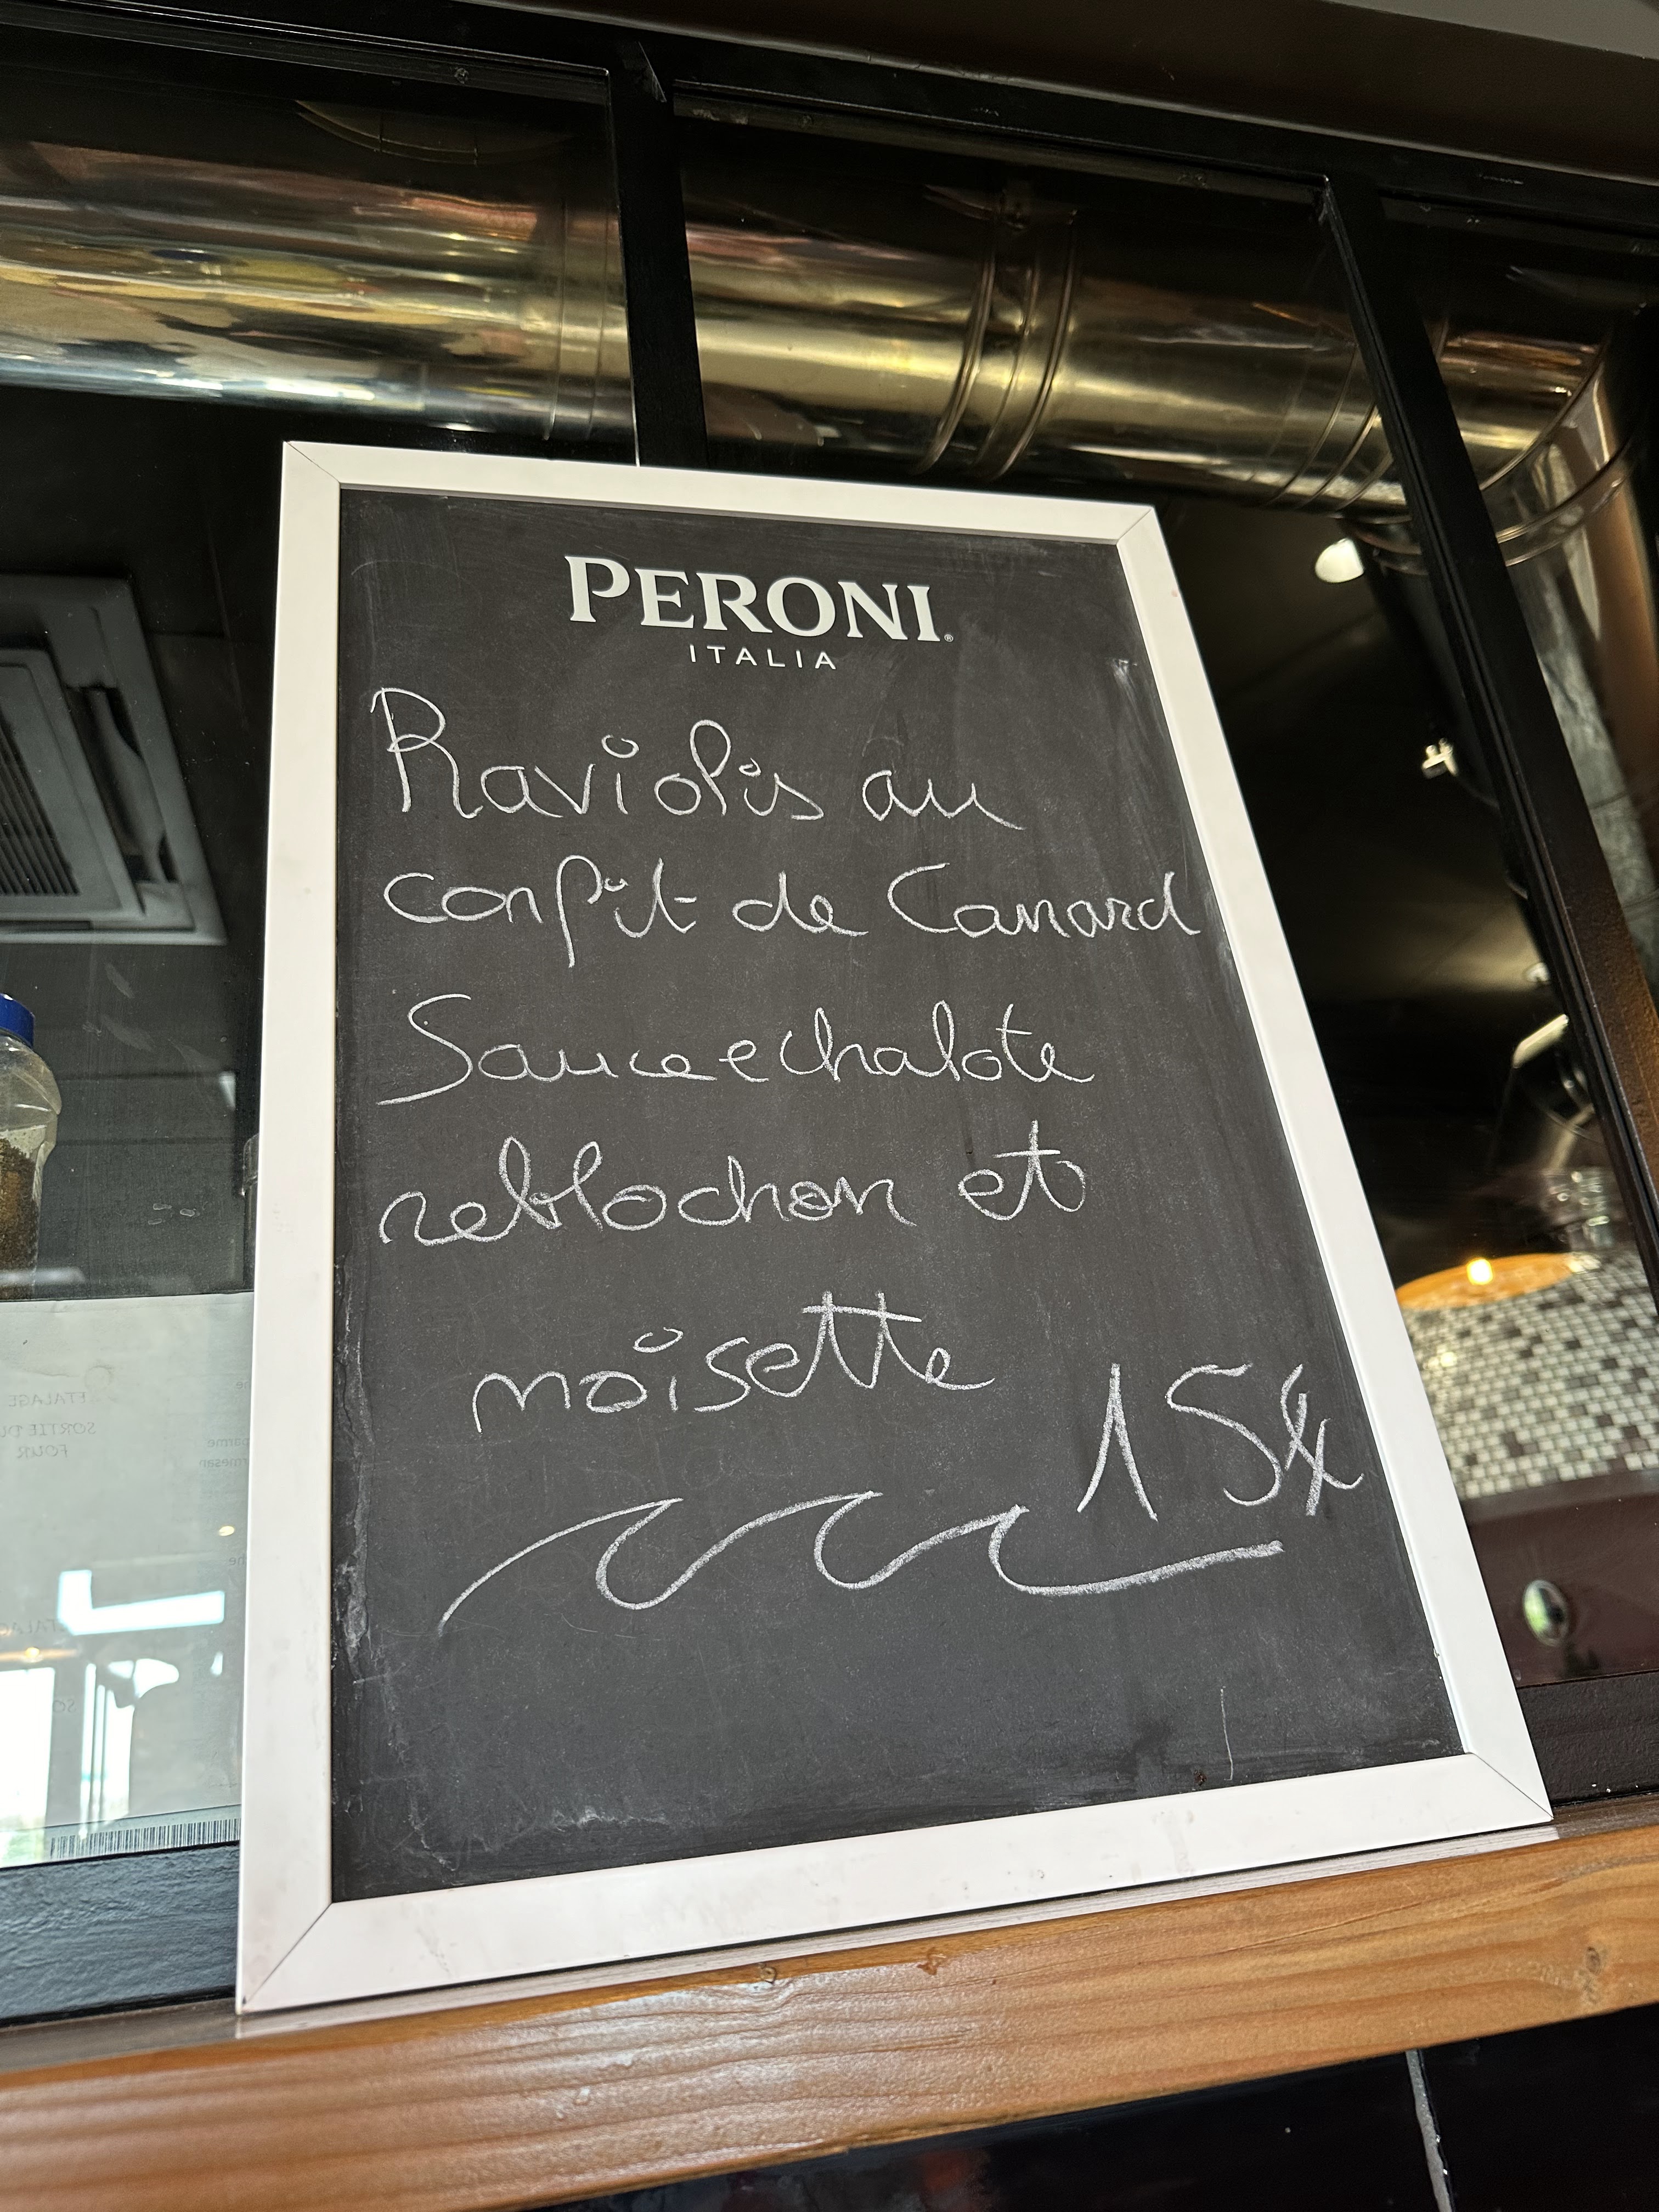 PERONI®
ITALIA
Raviolis au
confit de Canard
Sauce echalote
reblochon et
noisette
15€
ETALAGE
SORTIE DU
FOUR